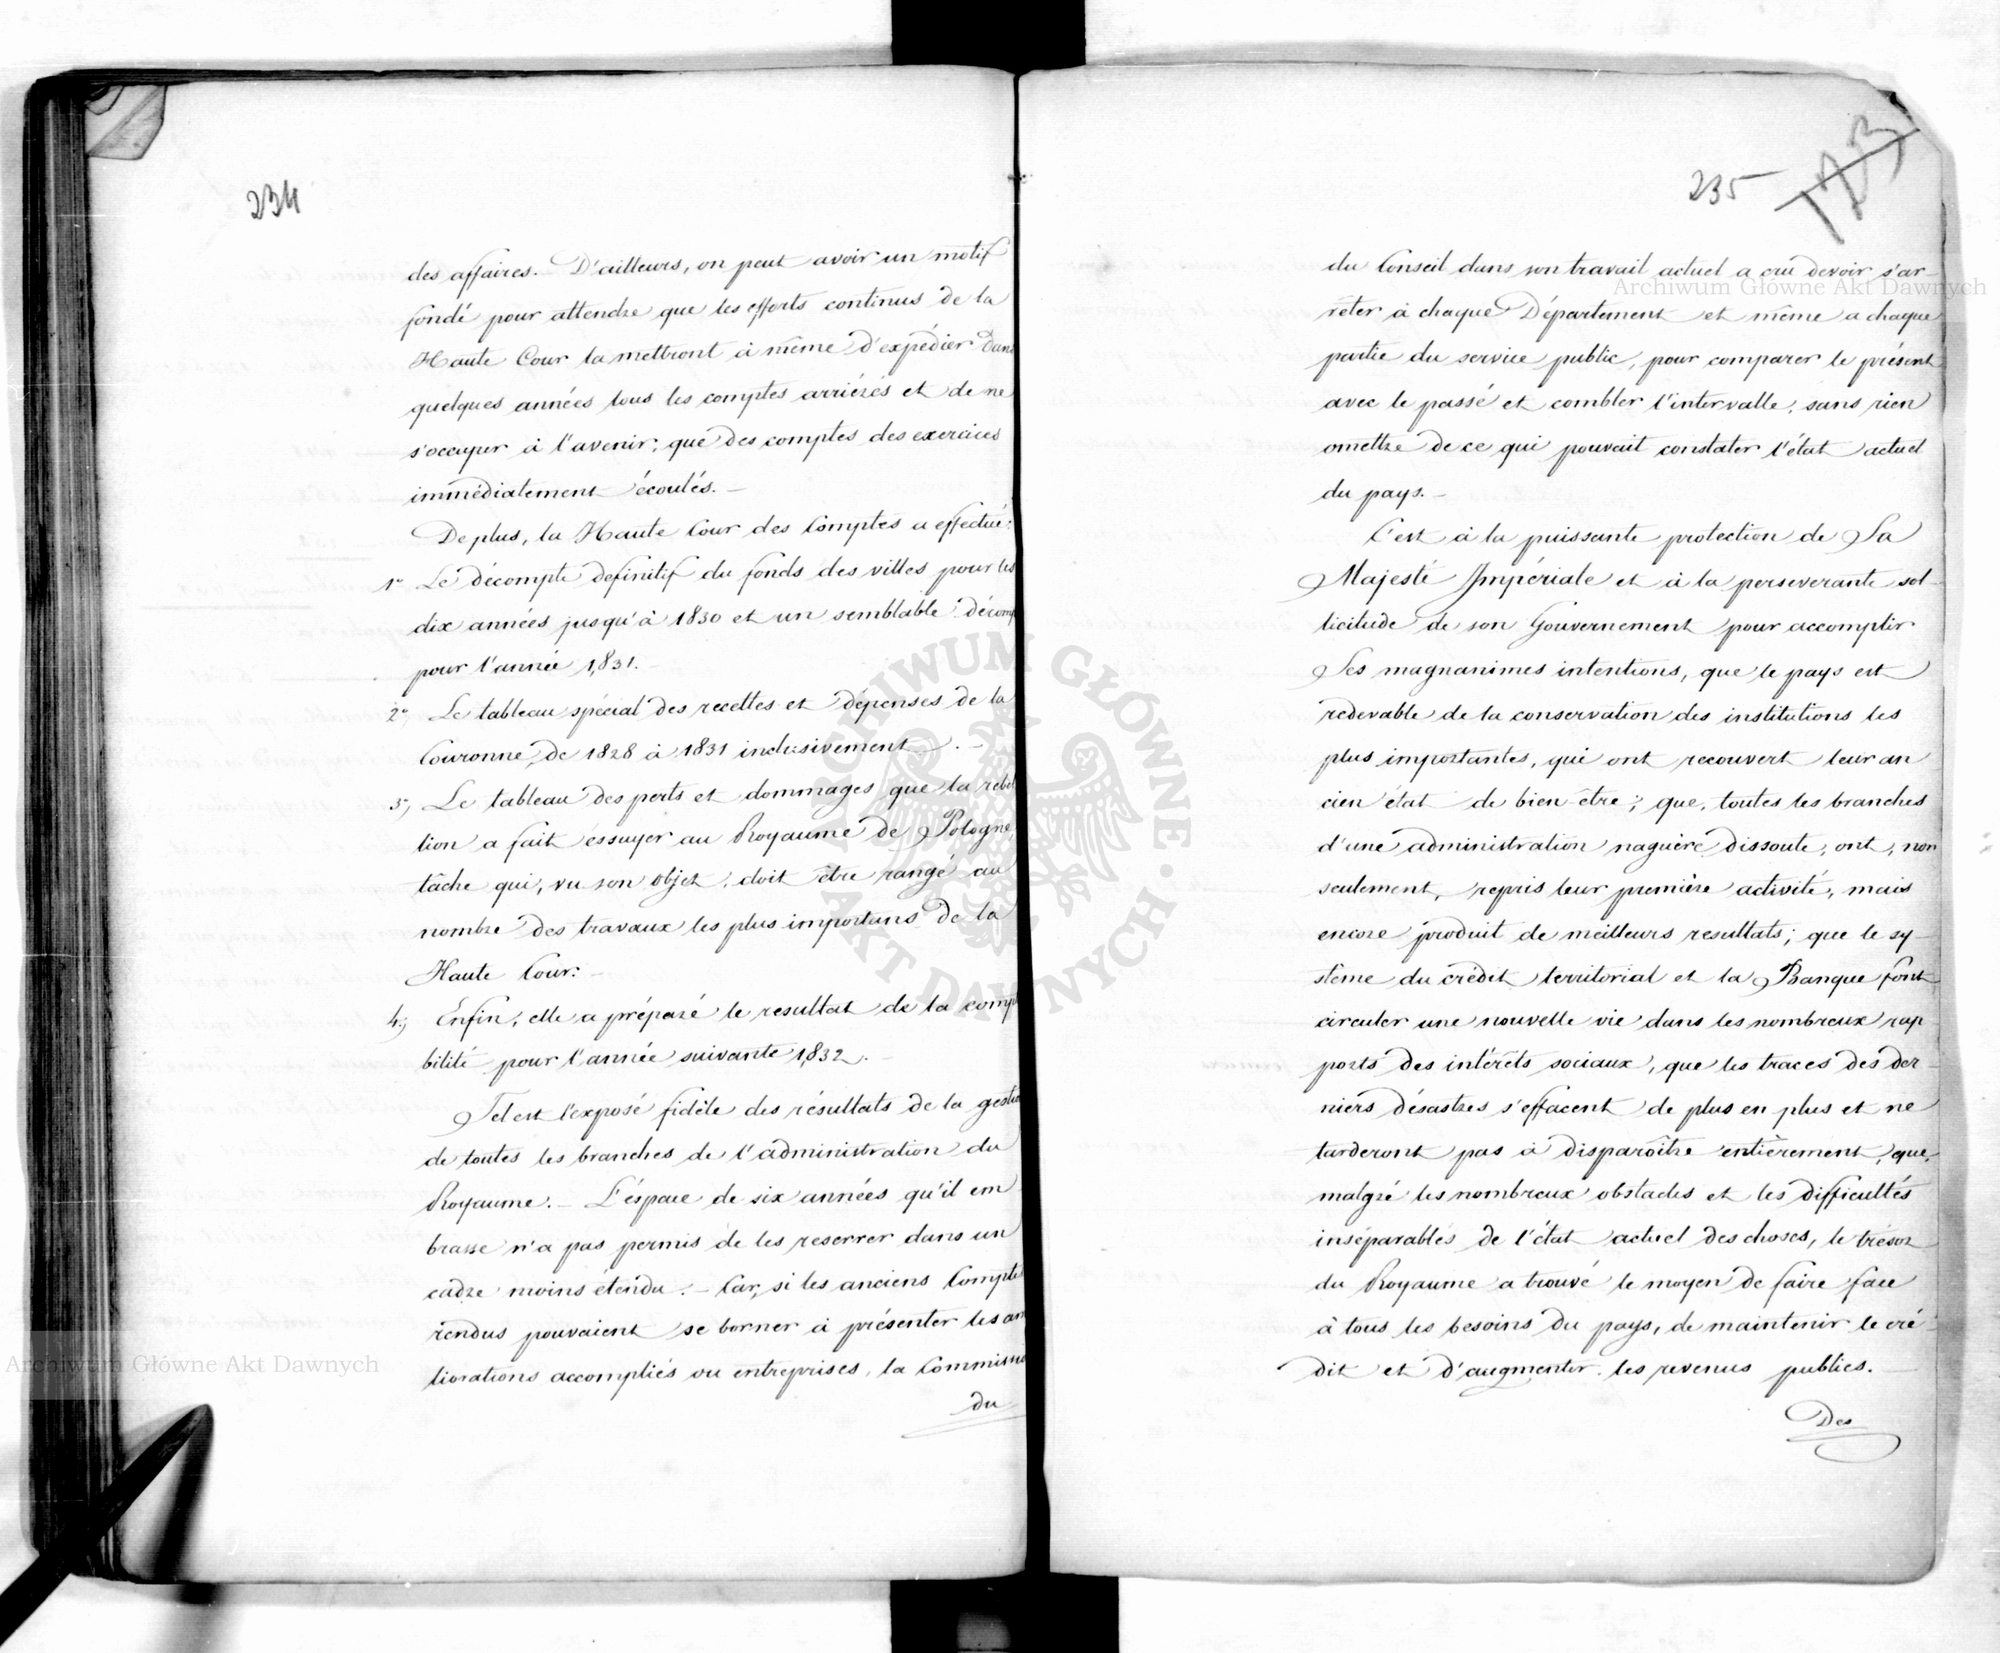 234
des affaires. — D'ailleurs, on peut avoir un motif
fondé pour attendre que les efforts continus de la
Haute Cour la mettront à même d'expédier dans
quelques années tous les comptes arriérés et de ne
s'occuper à l'avenir, que des comptes des exercices
immédiatement écoulés. —
De plus, la Haute Cour des Comptes a effectué:
1° Le décompte définitif du fonds des villes pour les
dix années jusqu'à 1830 et un semblable décomp
pour l'année 1831. —
2°, Le tableau spécial des recettes et dépenses de la
Couronne, de 1828 à 1831 inclusivement. —
3°, Le tableau des perts et dommages que la rebel
lion a fait éssuyer au Royaume de Pologne,
tâche qui, vu son objet, doit être rangé au
nombre des travaux les plus importans de la
Haute Cour. —
4°, Enfin, elle a préparé le resultat de la comp
bilité pour l'année suivante 1832. —
Tel est l'exposé fidèle des résultats de la gestio
de toutes les branches de l'administration du
Royaume. — L'éspace de six années qu'il em
brasse n'a pas permis de les reserrer dans un
cadre moins étendu. — Car, si les anciens Comptes
rendus pouvaient se borner à présenter les am
liorations accompliés ou entreprises, la Commissio
du
235
123
du Conseil dans son travail actuel a crû devoir s'ar-
rêter à chaque Département et même a chaque
partie du service public, pour comparer le présent
avec le passé et combler l'intervalle, sans rien
omettre de ce qui pouvait constater l'état actuel
du pays. —
C'est à la puissante protection de Sa
Majesté Impériale et à la perseverante sol-
licitude de son Gouvernement pour accomplir
Ses magnanimes intentions, que le pays est
redevable de la conservation des institutions les
plus importantes, qui ont recouvert leur an
cien état de bien-être; que, toutes les branches
d'une administration naguère dissoute, ont, non
seulement, repris leur première activité, mais
encore produit de meilleurs resultats; que le sy-
stême du crédit territorial et la Banque font
circuler une nouvelle vie dans les nombreux rap-
ports des intérêts sociaux, que les traces des der-
niers désastres s'effacent de plus en plus et ne
tarderont pas à disparoître entièrement, que,
malgré les nombreux obstacles et les difficultés
inséparables de l'état actuel des choses, le trésor
du Royaume a trouvé le moyen de faire face
à tous les besoins du pays, de maintenir le cré-
dit et d'augmenter les revenus publics.
Des
Archiwum Główne Akt Dawnych
Archiwum Główne Akt Dawnych
ARCHIWUM GŁÓWNE · AKT DAWNYCH ·